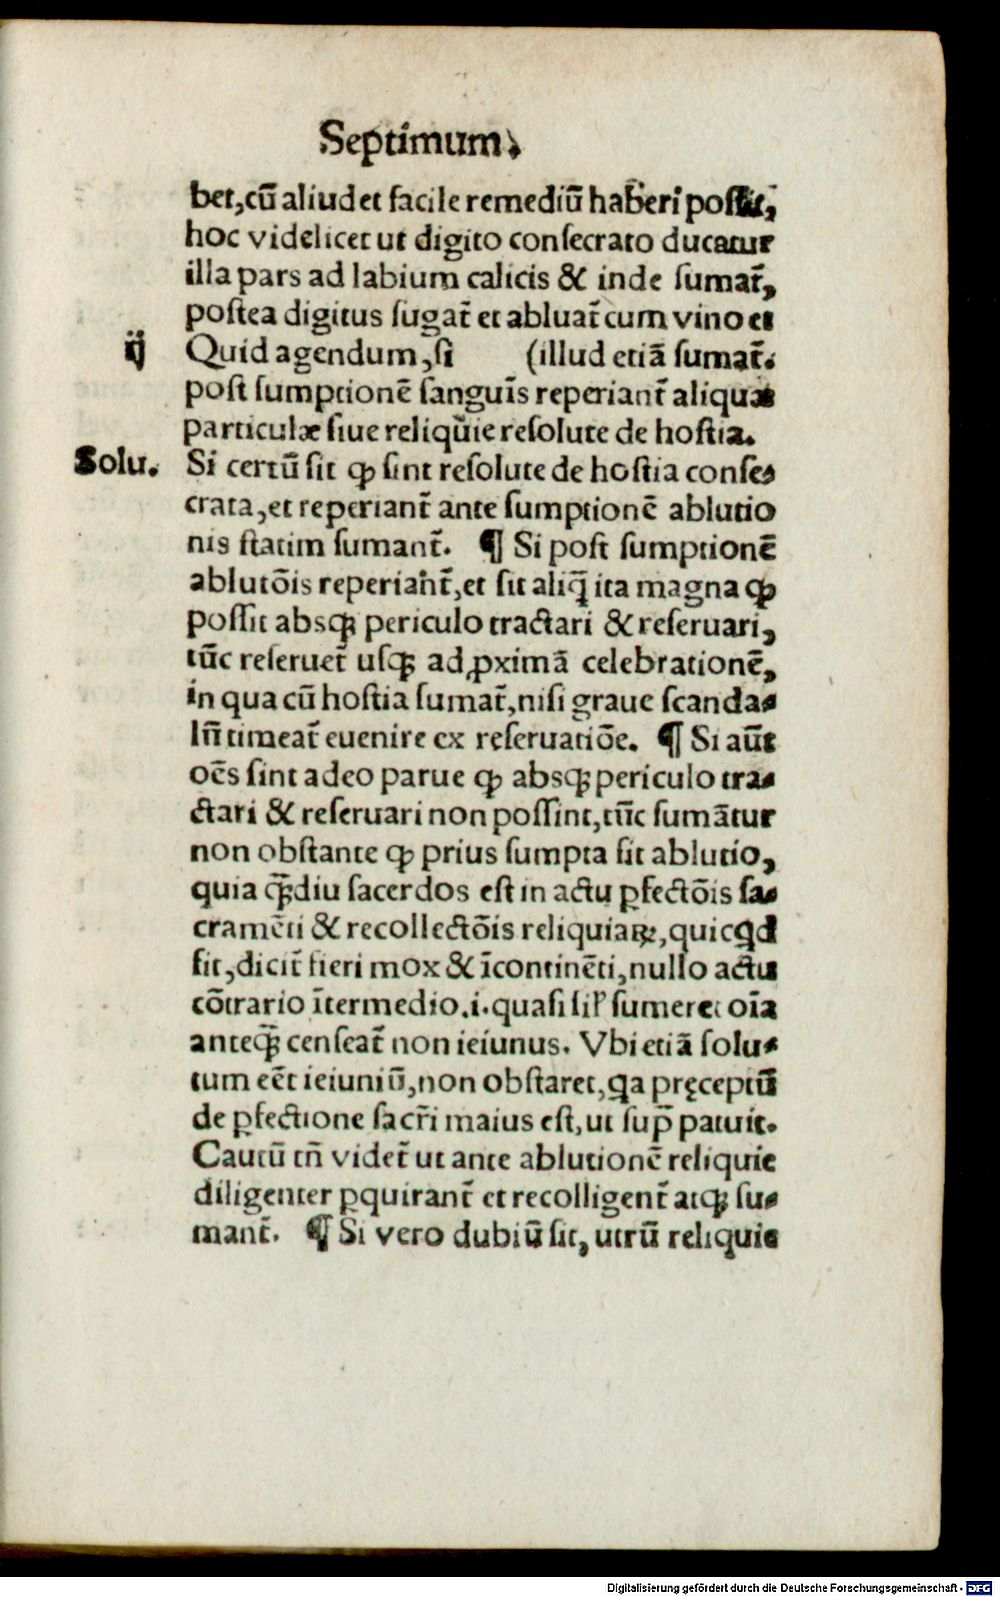 Septimum.
bet, cū aliud et facile remediū haberi possit,
hoc videlicet ut digito consecrato ducatur
illa pars ad labium calicis & inde sumat᷑,
postea digitus sugat᷑ et abluat᷑ cum vino et
ij Quid agendum, si (illud etiā sumat᷑.
post sumptionē sanguīs reperiant᷑ aliquæ
particulæ siue reliquie resolute de hostia.
Solu. Si certū sit ꝙ sint resolute de hostia conse⸗
crata, et reperiant᷑ ante sumptionē ablutio
nis statim sumant᷑. ¶ Si post sumptionē
ablutōis reperiant᷑, et sit aliq̄ ita magna ꝙ
possit absqꝫ periculo tractari & reseruari,
tūc reseruet᷑ usqꝫ ad ꝓximā celebrationē,
in qua cū hostia sumat᷑, nisi graue scanda⸗
lū timeat᷑ euenire ex reseruatiōe. ¶ Si aūt
oēs sint adeo parue ꝙ absqꝫ periculo tra⸗
ctari & reseruari non possint, tūc sumātur
non obstante ꝙ prius sumpta sit ablutio,
quia q̄ꝫdiu sacerdos est in actu ꝑfectōis sa⸗
cramēti & recollectōis reliquiaꝝ, quicqd
sit, dicit᷑ fieri mox & īcontinēti, nullo actu
cōtrario ītermedio .i. quasi sil’ sumeret oīa
anteq̄ꝫ censeat᷑ non ieiunus. Vbi etiā solu⸗
tum eēt ieiuniū, non obstaret, qa pręceptū
de ꝑfectione sacr̄i maius est, ut sup̄ patuit.
Cautū tn̄ videt᷑ ut ante ablutionē reliquie
diligenter ꝑquirant᷑ et recolligent᷑ atqꝫ su⸗
mant᷑. ¶ Si vero dubiū sit, utrū reliquie
Digitalisierung gefördert durch die Deutsche Forschungsgemeinschaft - DFG